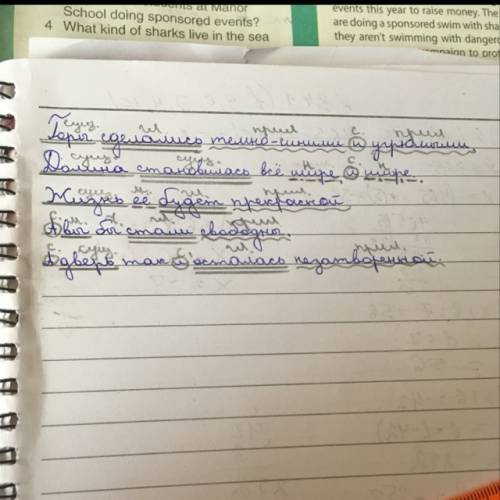 School doing sponsored events?
4 What kind of sharks live in the sea
events this year to raise money. The
are doing a sponsored swim with sha
they aren't swimming with danger
сущ. гл. прил. с. прил.
Горы сделались темно-синими и угрюмыми.
сущ. сущ. н с. н
Долина становилась всё шире и шире.
сущ. м. гл. прил.
Жизнь её будет прекрасной.
с. м. гл. прил.
А вы бы стали свободны.
с. сущ. с гл. прил.
А дверь так и осталась незатворенной.